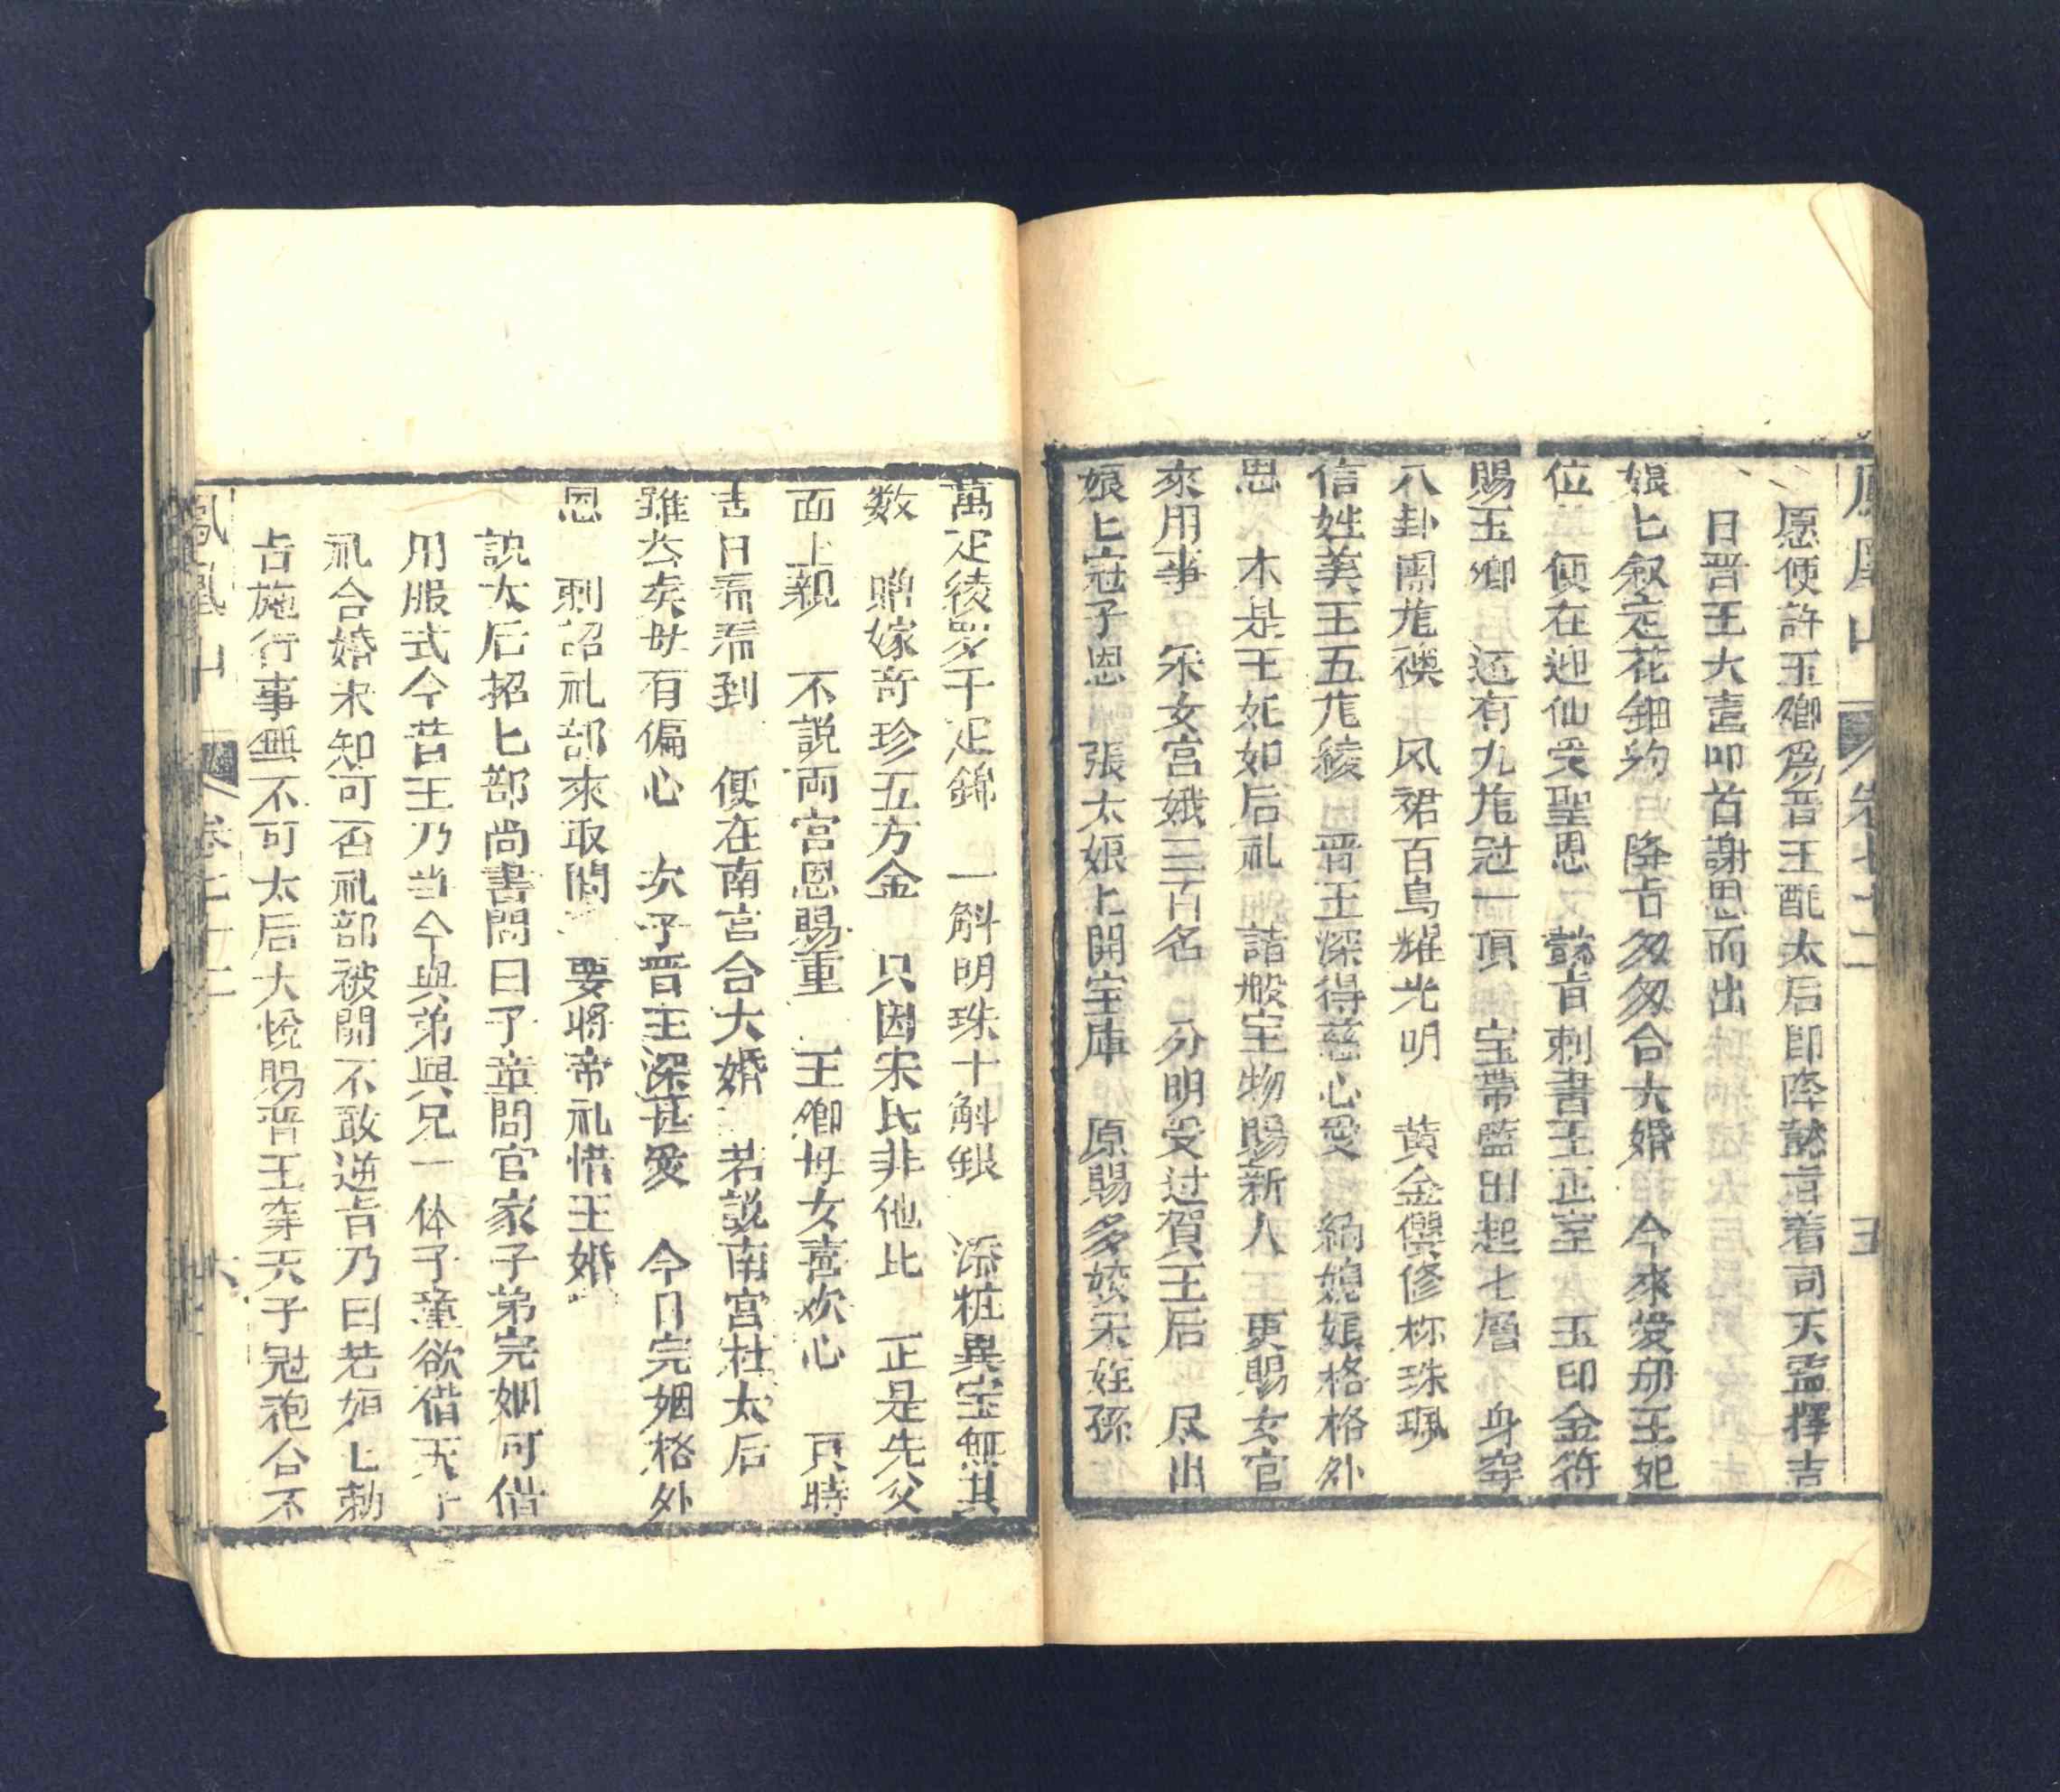 鳳凰山 卷七十二 五
愿便許玉卿爲晋王配太后即降懿旨着司天監擇吉
日晋王大喜叩首謝恩而出
娘匕叙定花鈿約 降占匆匆合大婚 今來爱册王妃
位 便在迎仙受聖恩 懿旨刺書王正室 玉印金符
賜玉卿 还有九龙冠一頂 宝帶監出起七層 身穿
八卦團龙襖 风裙百鳥耀光明 黄金 修 珠珮
信姓美王五龙綾 晋王深得慈心爱 娘格格外
恩 木是王妃如后礼 諸般宝物賜新人 更賜女官
來用事 宋女宫娥三百名 分明受过賀王后 尽出
娘匕冠子恩 張太娘上開宝庫 原賜多嬌宋姪孫
萬疋綾罗千疋錦 一斛明珠十斛銀 添粧異宝無其
数 贈嫁奇珍五方金 只因宋氏非他比 正是先父
面上親 不説両宫恩賜重 王卿母女喜欢心 頁時
吉日看看到 便在南宫合大婚 若説南宫杜太后
雖然矣母有偏心 次子晋王深甚爱 今日完姻格外
恩 刺詔礼部來取閙 要將帝礼惜王婚
説太后招匕部尚書問曰子童問官家子弟完姻可借
用服式今昔王乃当今與弟與兄一体子童欲借天子
礼合婚未知可否礼部被問不敢逆旨乃曰若娘匕勅
占施行事無不可太后大悅賜晋王穿天子冠袍合不
鳳凰山 卷七十二 六